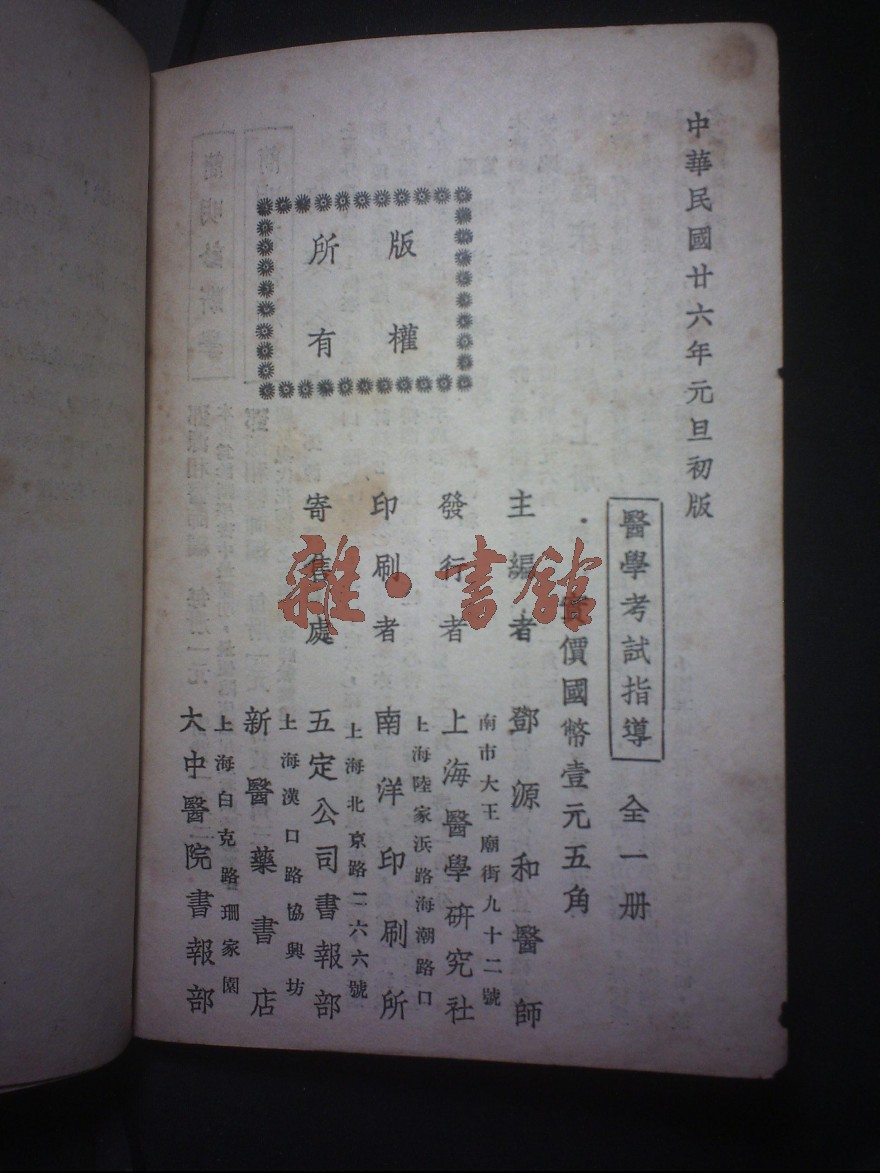 中華民國廿六年元旦初版
醫學考試指導 全一册
實價國幣壹元五角
主編者 鄧源和醫師
南市大王廟街九十二號
發行者 上海醫學研究社
上海陸家浜路海潮路口
印刷者 南洋印刷所
上海北京路二六六號
寄售處 五定公司書報部
上海漢口路協興坊
新醫藥書店
上海白克路珊家園
大中醫院書報部
版權
所有
雜·書館
簡明診斷學